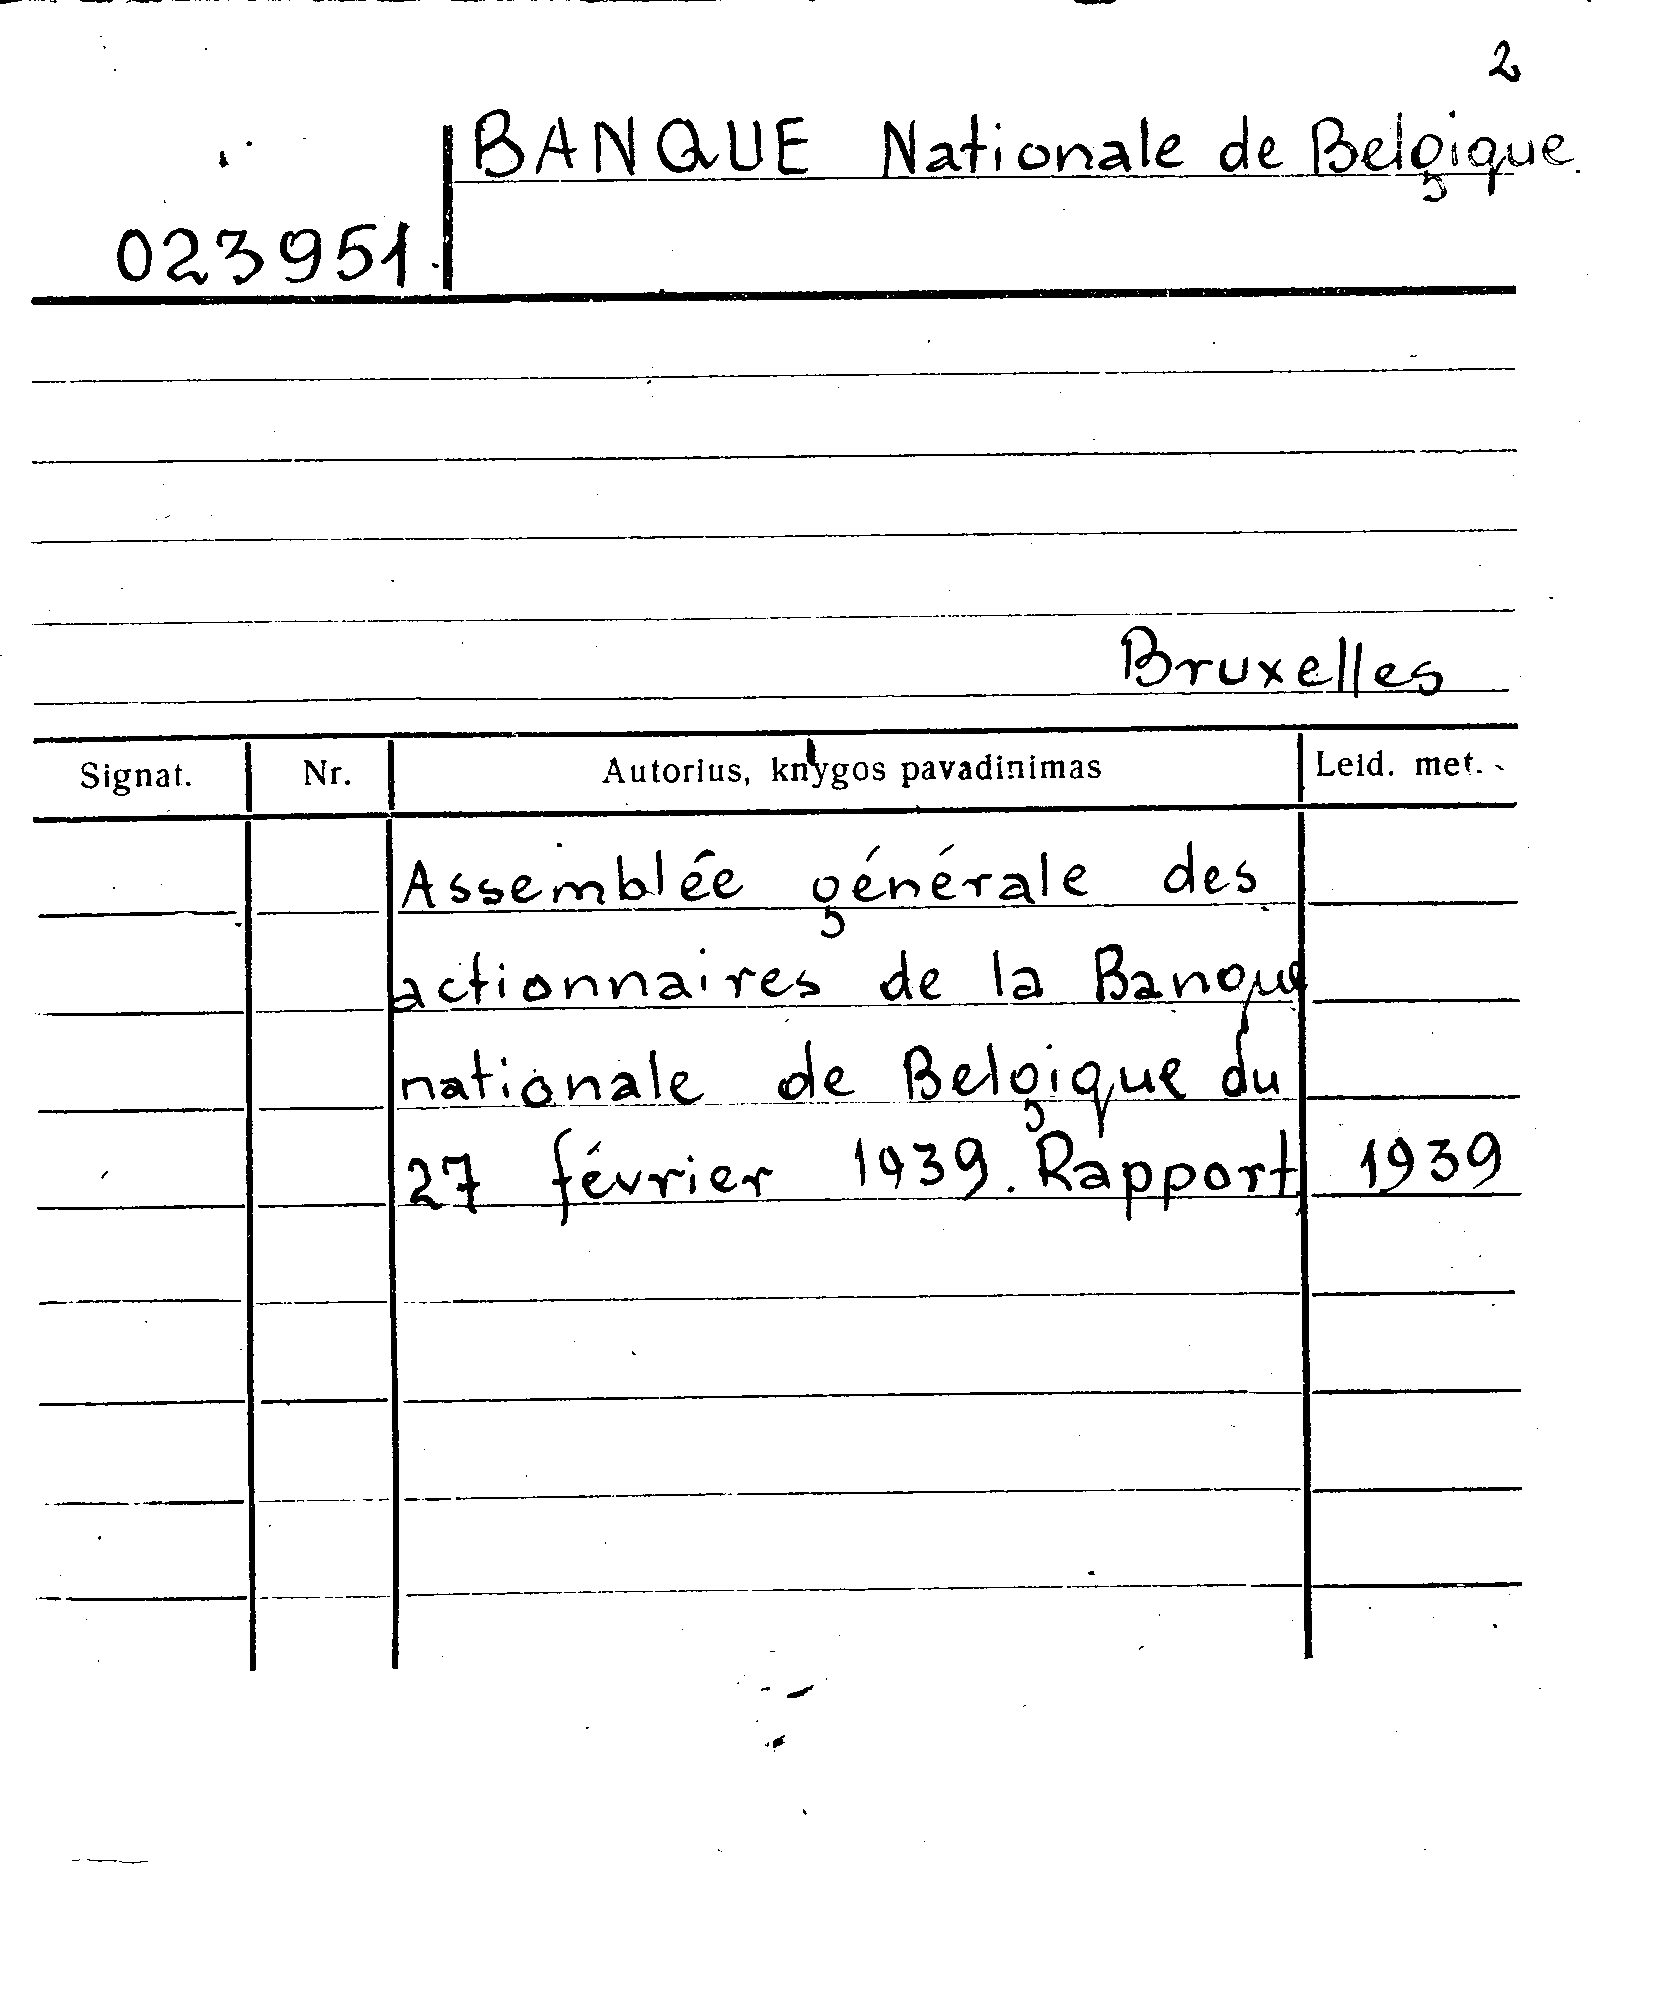 2
BANQUE Nationale de Belgique.
023951
Bruxelles
Signat. Nr. Autorius, knygos pavadinimas Leid. met.
Assemblée générale des
actionnaires de la Banque
nationale de Belgique du
27 février 1939. Rapport 1939